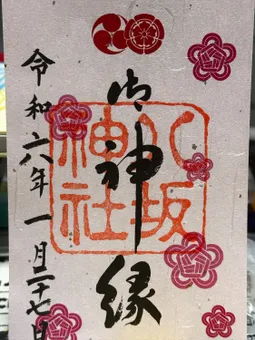 御神縁
八坂神社
令和六年一月二十七日